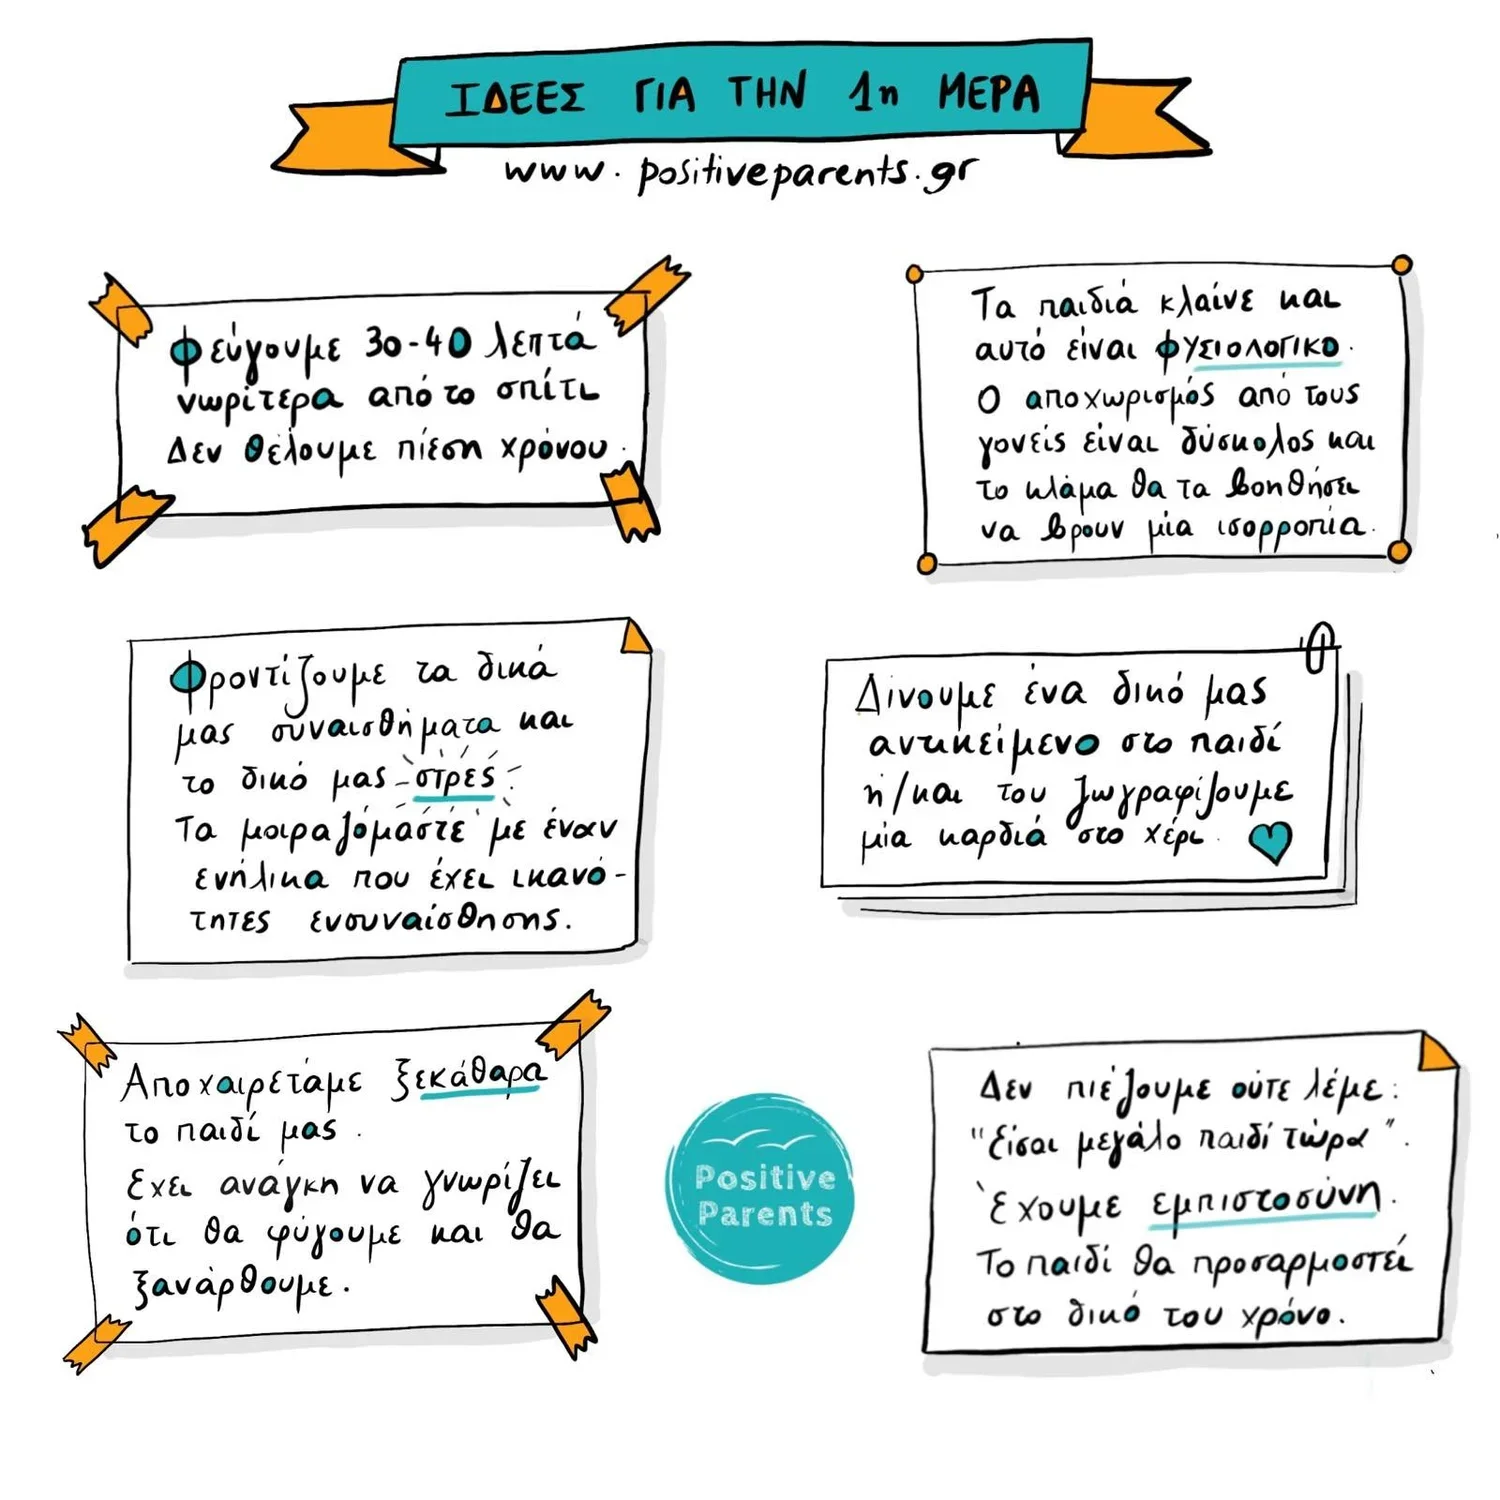 ΙΔΕΕΣ ΓΙΑ ΤΗΝ 1η ΜΕΡΑ
www.positiveparents.gr
Φεύγουμε 30-40 λεπτά
νωρίτερα από το σπίτι
Δεν θέλουμε πίεση χρόνου.
Τα παιδιά κλαίνε και
αυτό είναι φΥΣΙΟΛΟΓΙΚΟ.
Ο αποχωρισμός από τους
γονείς είναι δύσκολος και
το κλάμα θα τα βοηθήσει
να βρουν μία ισορροπία.
Φροντίζουμε τα δικά
μας συναισθήματα και
το δικό μας στρες
Τα μοιραζόμαστε με έναν
ενήλικα που έχει ικανό-
τητες ενσυναίσθησης.
Δίνουμε ένα δικό μας
αντικείμενο στο παιδί
ή/και του ζωγραφίζουμε
μία καρδιά στο χέρι.
Αποχαιρετάμε ξεκάθαρα
το παιδί μας.
Έχει ανάγκη να γνωρίζει
ότι θα φύγουμε και θα
ξανάρθουμε.
Positive
Parents
Δεν πιέζουμε ούτε λέμε:
"Είσαι μεγάλο παιδί τώρα".
Έχουμε εμπιστοσύνη.
Το παιδί θα προσαρμοστεί
στο δικό του χρόνο.